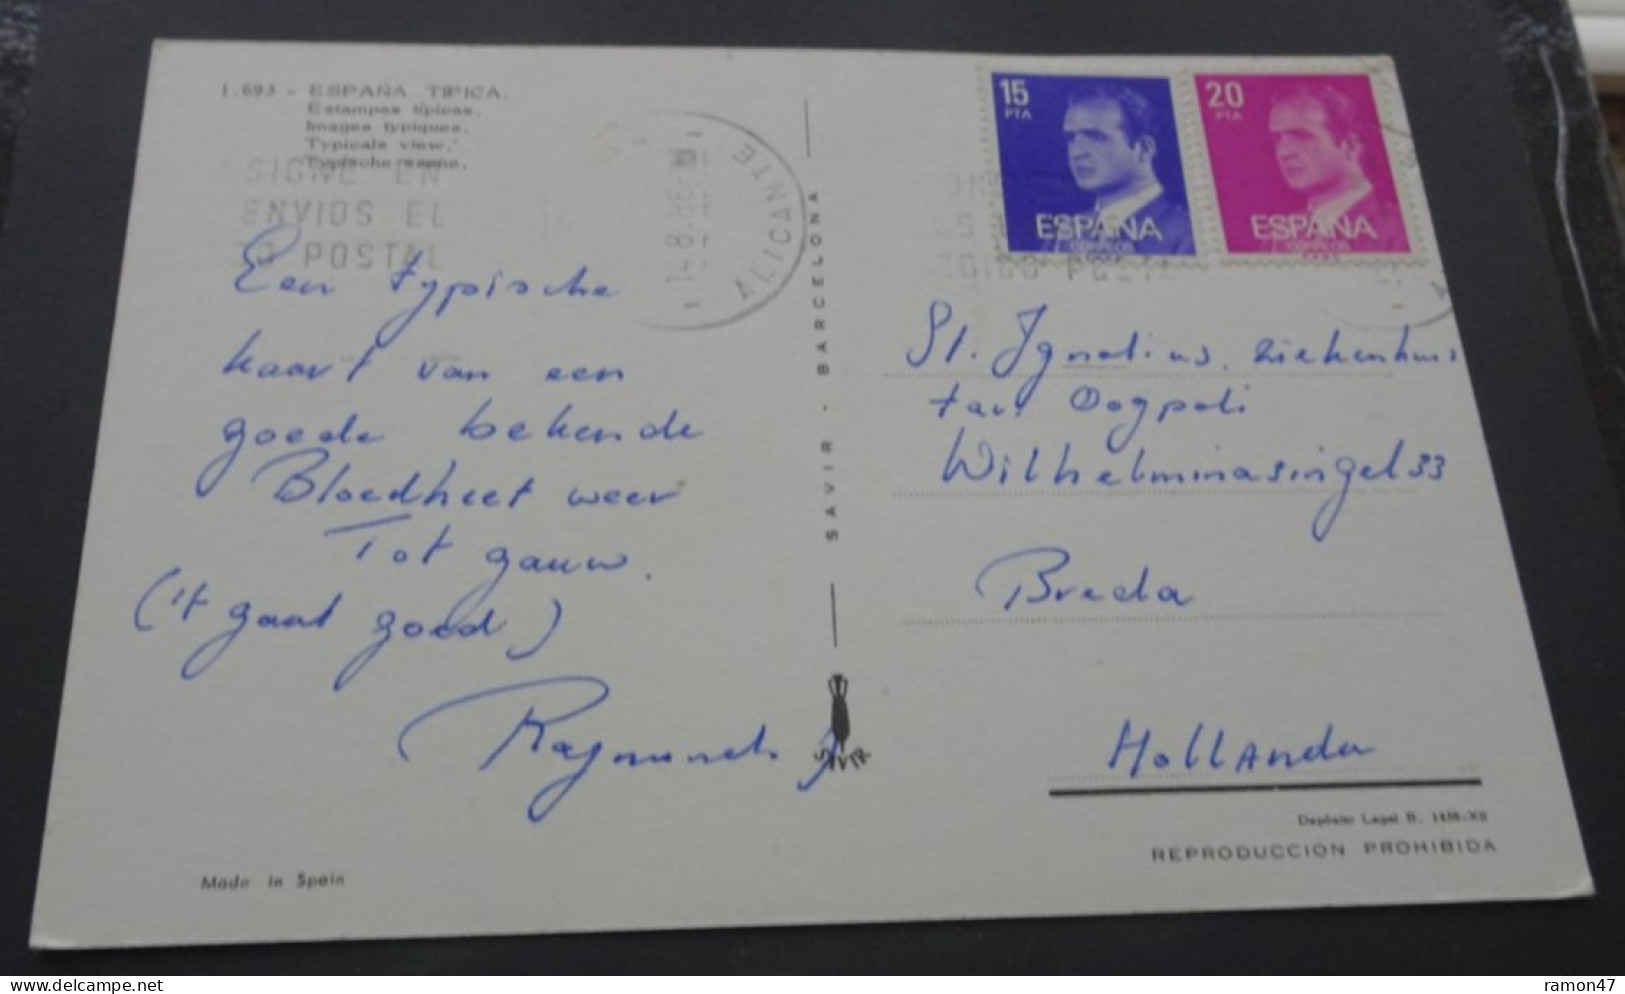 1.693 - ESPAÑA TIPICA.
Estampas típicas.
Images typiques.
Typicals view.
Typische szene.
SIGNE EN
ENVIOS EL
GO POSTAL
14.8.86
ALICANTE
15
PTA
ESPAÑA
CORREOS
20
PTA
ESPAÑA
CORREOS
Een typische
kaart van een
goede bekende
Bloedheet weer
Tot gauw.
('t gaat goed)
SAVIR - BARCELONA
SAVIR
St. Ignatius. ziekenhuis
t.a.v. Oogpoli
Wilhelminasingel 33
Breda
Hollanda
Depósito Legal B. 1458-XII
REPRODUCCION PROHIBIDA
Made in Spain
ramon47